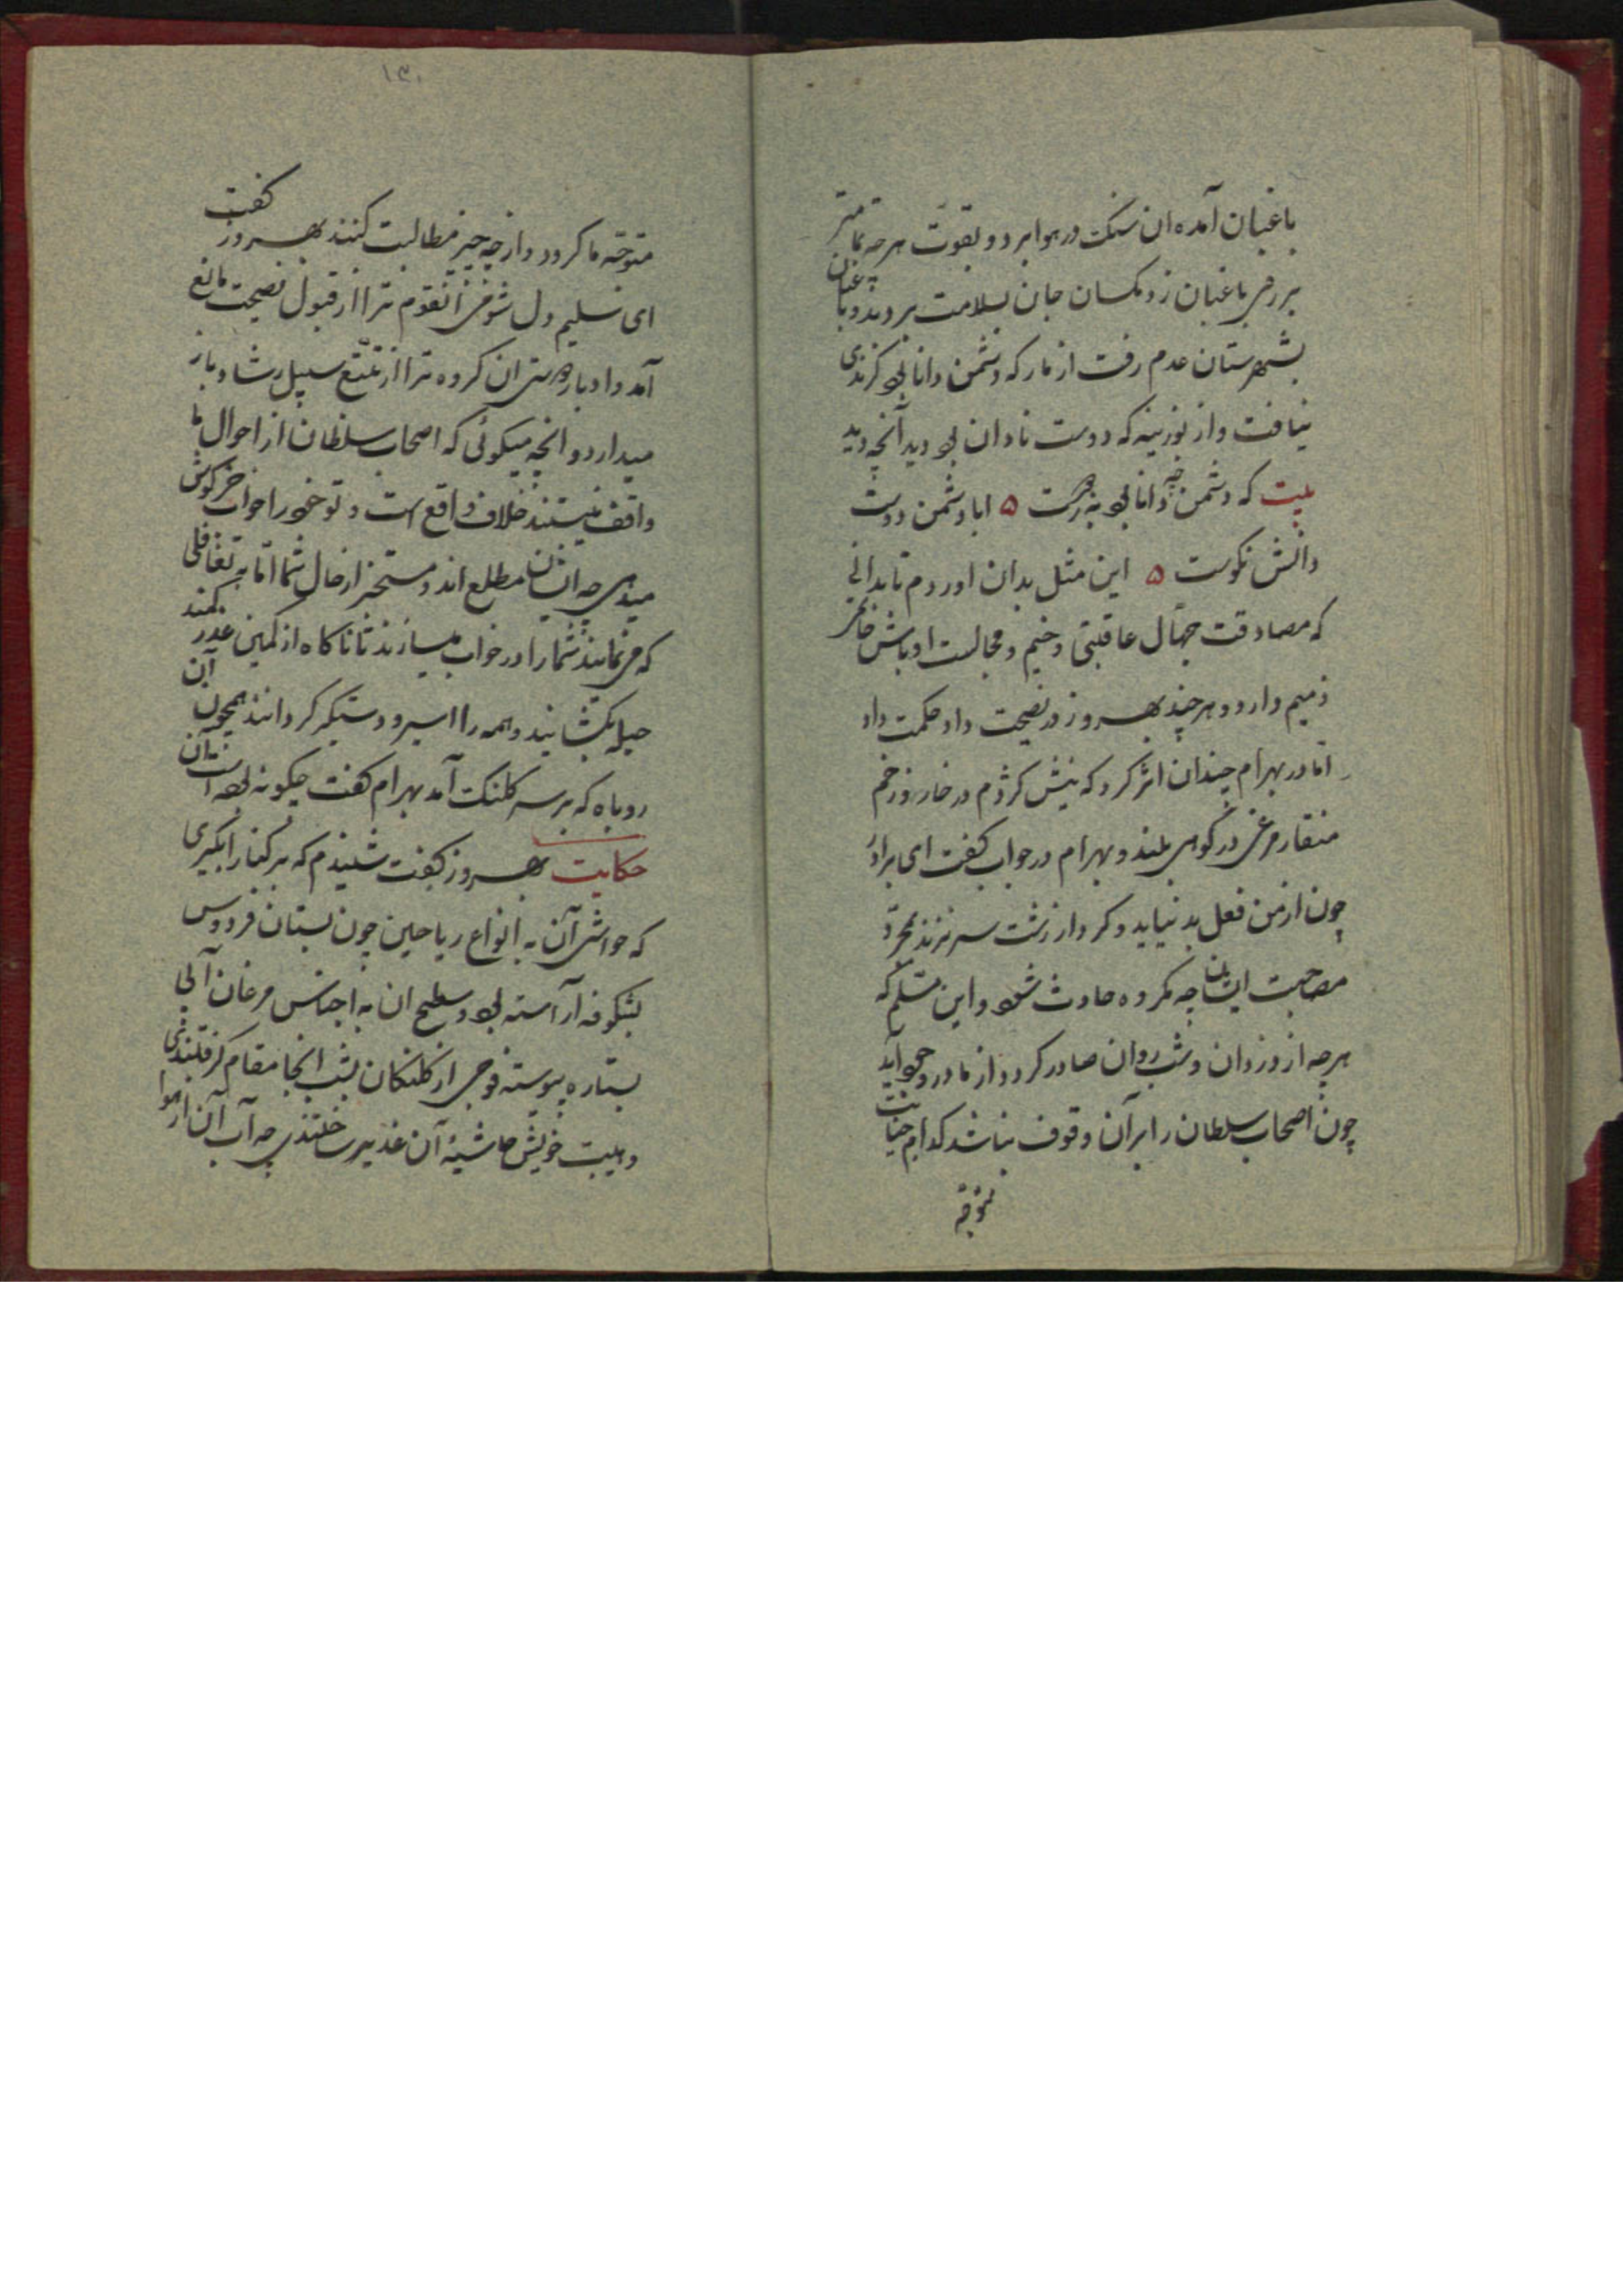 باغبان آمده ان سنگ در هوا برد و بقوت هرچه تمامتر
بر روی باغبان زد مگسان جان بسلامت بردند و باغبان
بشهرستان عدم رفت از مار که دشمن دانا بود گزندی
نیافت و از بوزینه که دوست نادان بود دید آنچه دید
بیت که دشمن چه دانا بود به ز دوست ۵ ابا دشمن و دوست
دانش نکوست ۵ این مثل بدان اوردم تا بدانی
که مصادقت جهّال عاقبتی وخیم و مجالست اوباش خاتمتی
ذمیم دارد و هرچند بهروز در نصیحت داد حکمت داد
امّا در بهرام چندان اثر کرد که نیش کژدم در خار و زخم
منقار مرغی در کوهی بلند و بهرام در جواب گفت ای برادر
چون از من فعل بد نیاید و کردار زشت سر نزند بمجرّد
مصاحبت ایشان چه مکروه حادث شود و این مسلّم که
هرچه از دزدان و شب روان صادر گردد از ما در وجود آید
چون اصحاب سلطان را بر آن وقوف نباشد کدام خیانت
متوجّه
۱۳۰
متوجّه ما گردد و از چه چیز مطالبت کنند بهروز گفت
ای سلیم دل شومی آنقوم ترا از قبول نصیحت مانع
آمد و ادبار دوستی ان گروه ترا از تتبّع سبیل رشاد باز
میدارد و انچه میگوئی که اصحاب سلطان از احوال ما
واقف نیستند خلاف واقع است و تو خود را خواب خرگوش
میدهی چه ایشان مطلع اند و مستخبر از حال شما امّا به تغافلی
که می نمایند شما را در خواب میسازند تا ناگاه از کمین غدر کمند
حیله بگشایند و همه را اسیر و دستگیر گردانند همچون آن
روباه که بر سر کلنگ آمد بهرام گفت چگونه بوده است آن
حکایت بهروز گفت شنیدم که بر کنار ابگیری
که حواشی آن به انواع ریاحین چون بستان فردوس
بشکوفه آراسته بود و سطح ان به اجناس مرغان آبی
بستاره پیوسته فوجی از کلنگان بشب انجا مقام گرفتندی
و مبیت خویش حاشیهٔ آن غدیر ساختندی چه آب آن از هوا